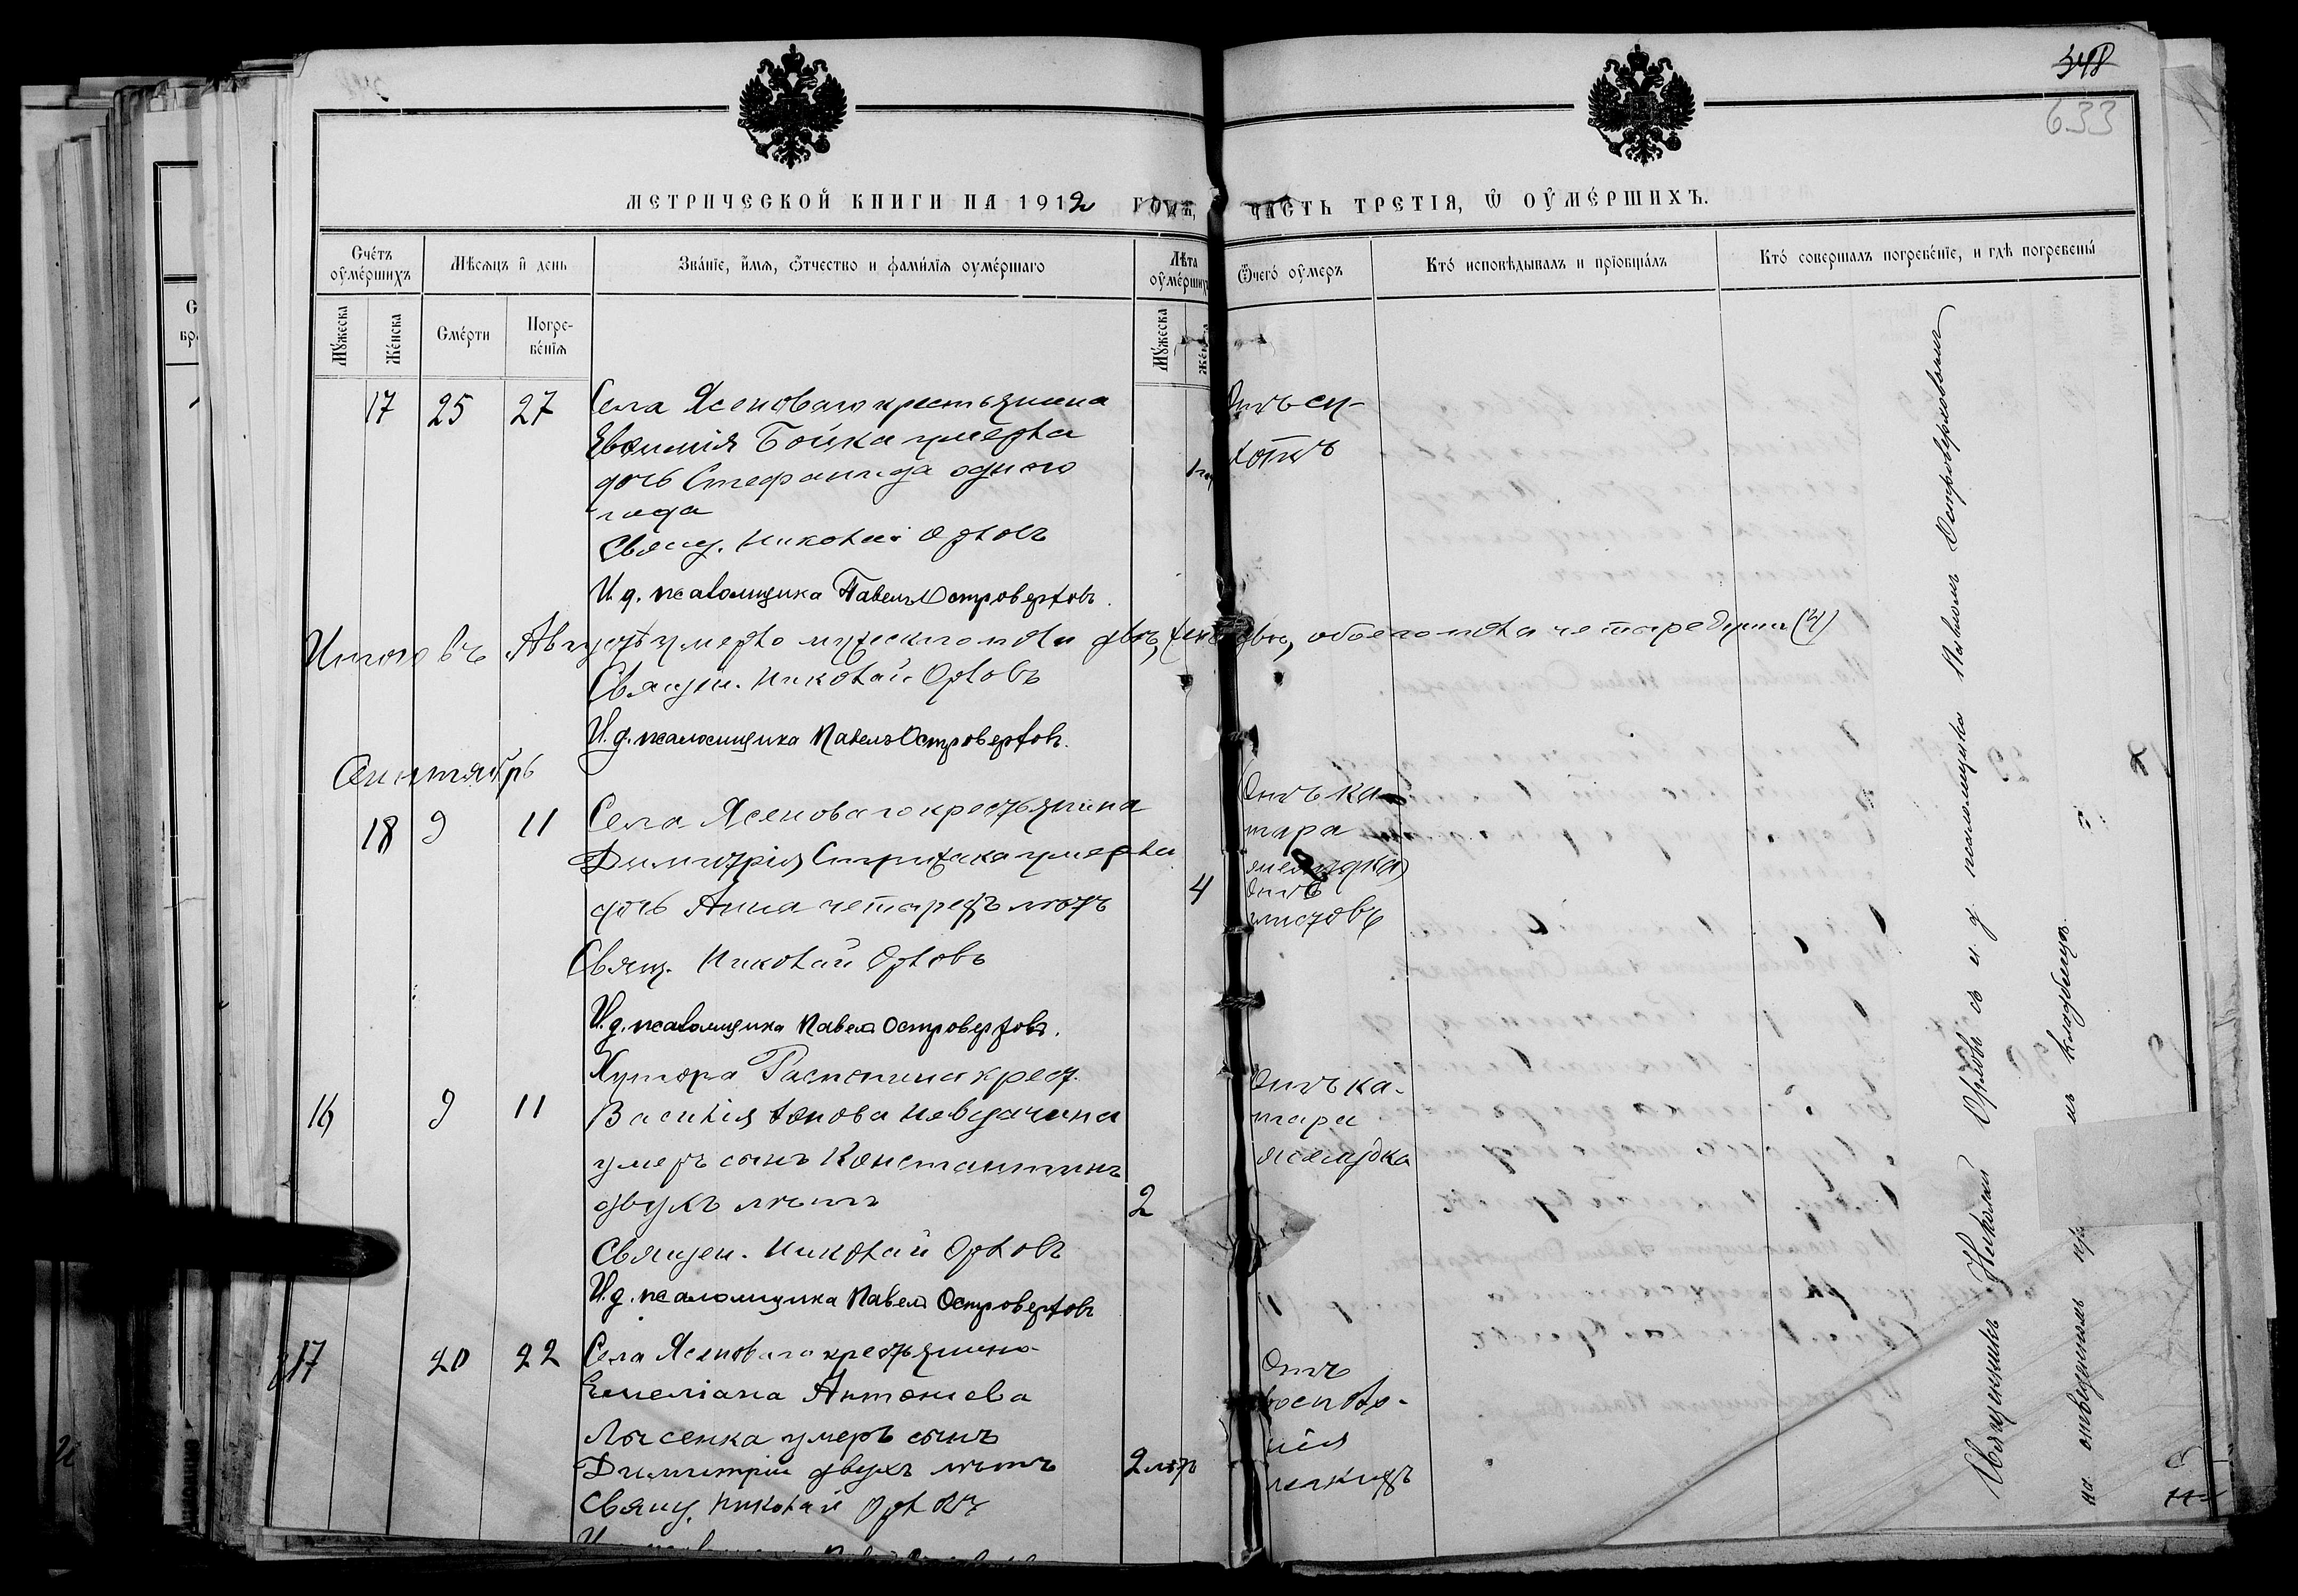 348
633
МЕТРИЧЕСКОЙ КНИГИ НА 1912 ГОДЪ, ЧАСТЬ ТРЕТІЯ, Ѿ ОУМЕ́РШИХЪ.
Счетъ оумершихъ
Мѣсяцъ и день
Званіе, имя, отчество и фамилія оумершаго
Лѣта оумершихъ
Ѿчего оумеръ
Кто исповѣдывалъ и пріобщалъ
Кто совершалъ погребеніе, и гдѣ погребены
Мужеска
Женска
Смерти
Погребенія
Мужеска
Женска
17 25 27 Села Ясеноваго крестьянина
Евѳимія Бойка умерла
дочь Стефанида одного
года
Свящ. Николай Орловъ
И. д. псаломщика Павелъ Островерховъ.
1 год
Отъ су-
хотъ
Итого въ Августѣ умерло мужескаго пола два, жен. два, обоего пола четыре души (4)
Священ. Николай Орловъ
И. д. псаломщика Павелъ Островерховъ.
Сентябрь
18 9 11 Села Ясеноваго крестьянина
Димитрія Стрижака умерла
дочь Анна четырехъ лѣтъ
Свящ. Николай Орловъ
И. д. псаломщика Павелъ Островерховъ.
4
Отъ ка-
тара
желудка
Отъ
глистовъ
Хутора крест.
16 9 11 Василія
умеръ сынъ Константинъ
двухъ лѣтъ
Священ. Николай Орловъ
И. д. псаломщика Павелъ Островерховъ
2
Отъ ка-
тара
желудка
17 20 22 Села Ясеноваго крестьянина
Емеліана Антоніева
Лысенка умеръ сынъ
Димитрій двухъ лѣтъ
Свящ. Николай Орловъ
2 лѣтъ
Отъ
воспале-
нія
легкихъ
Священникъ Николай Орловъ съ и д псаломщика Павломъ Островерховымъ
на отведенномъ кладбищѣ